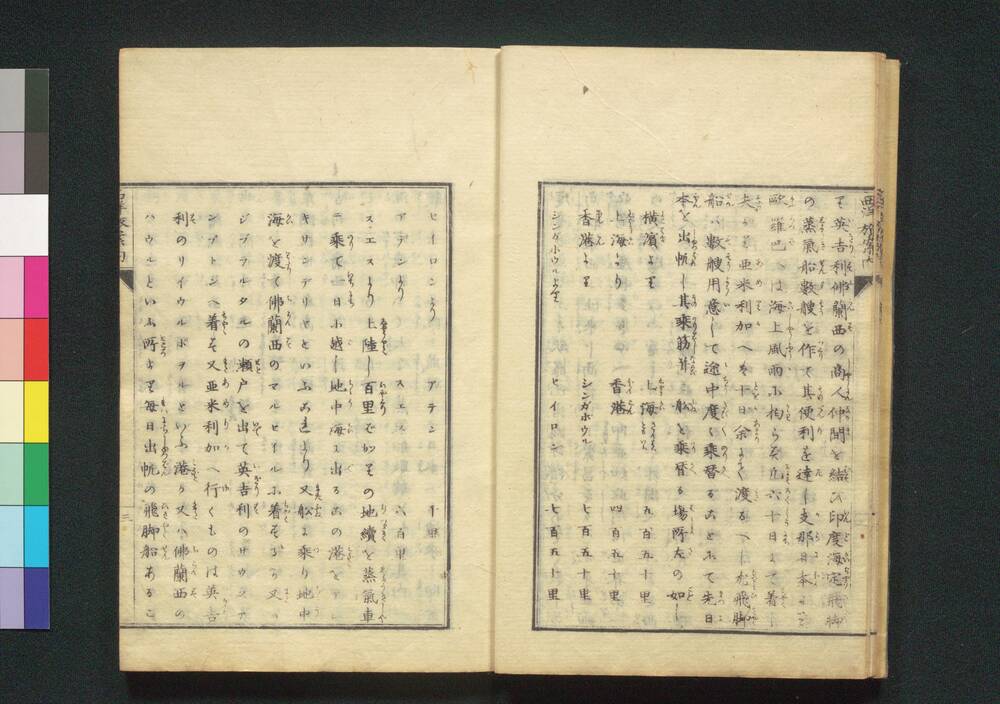 て英吉利佛蘭西の商人仲間を結び印度海定飛脚
の蒸氣船數艘を作て其便利を達し支那日本より
歐羅巴へは海上風雨に拘らず凡六十日にて着し
夫より亜米利加へも十日余にて渡るべく尤飛脚
船は數艘用意して途中度々乗替ることにて先日
本を出帆し其乗筋并船を乗替る場所左の如し
横濱より 上海 九百五十里
上海より 香港 四百五十里
香港より シンガポウル 七百五十里
シンガポウルより ヒイロン 七百五十里
ヒイロンより アデン 千里
アデンより スエス 六百里
スエスより上陸し百里ばかりの地續を蒸氣車
に乗て一日に越し地中海に出るこの港をアレ
キサンデリヤといふこれより又船に乗り地中
海を渡て佛蘭西のマルセイルに着するか又は
ジブラルタルの瀬戸を出て英吉利のサウスア
ンプトンへ着す又亜米利加へ行くものは英吉
利のリイウルポヲルといふ港か又は佛蘭西の
ハウルといふ所より毎日出帆の飛脚船あるこ
三